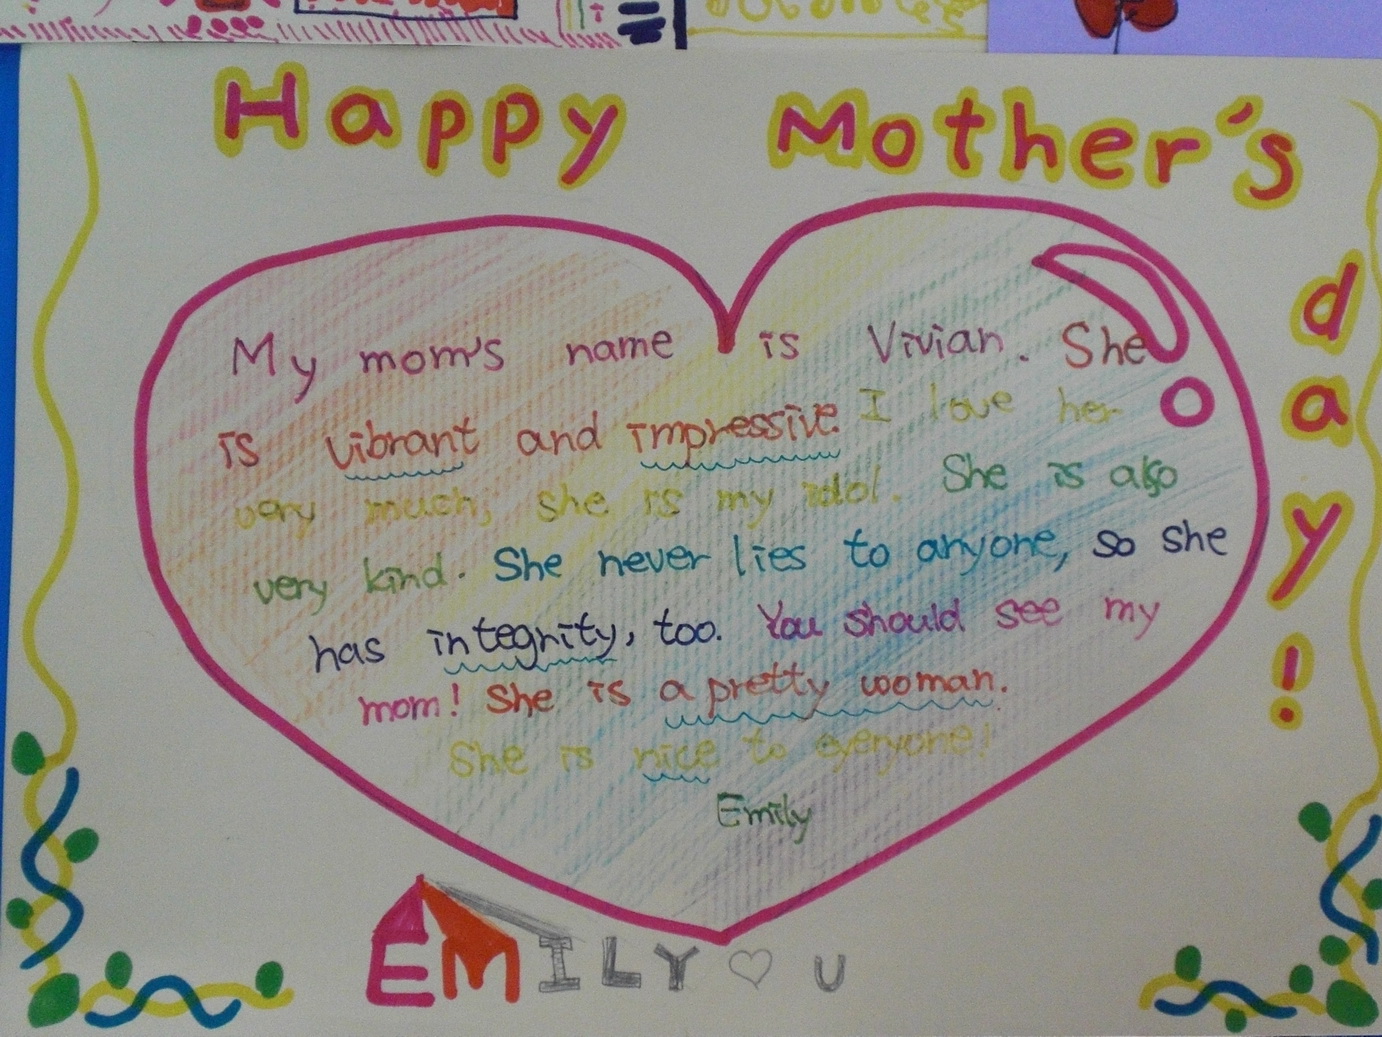 Happy Mother's
day!
My mom's name is Vivian. She
is vibrant and impressive. I love her
very much; she is my idol. She is also
very kind. She never lies to anyone, so she
has integrity, too. You should see my
mom! She is a pretty woman.
She is nice to everyone!
Emily
EMILY ♡ U